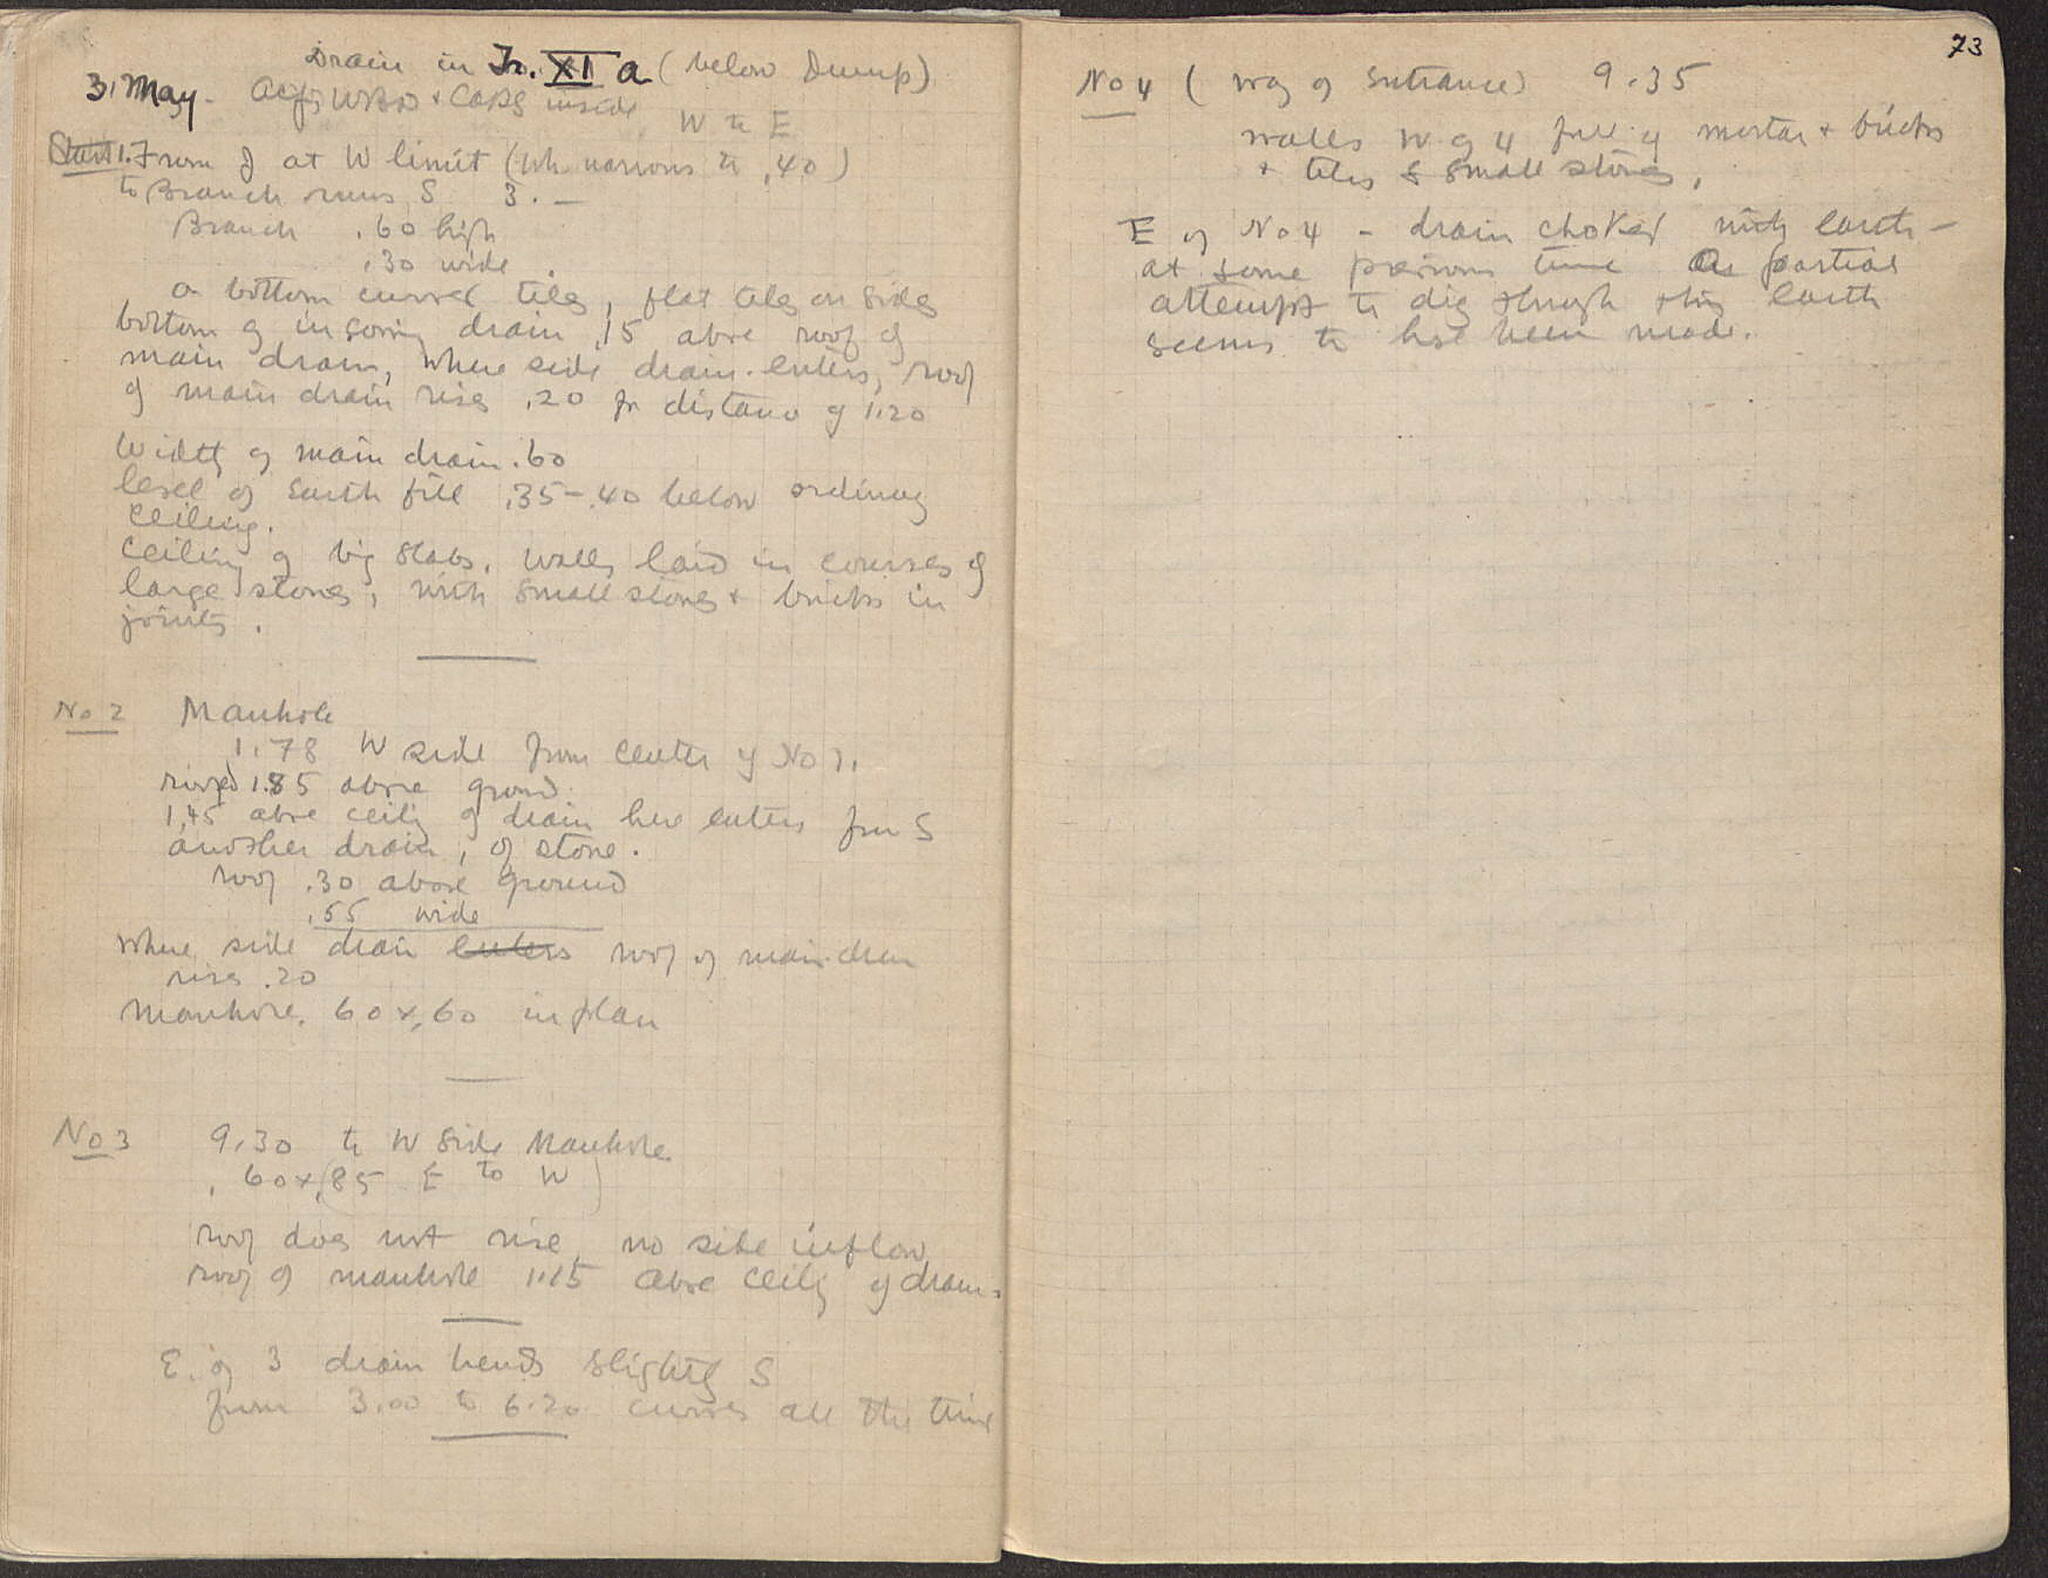 Drain in Tr. XI a (below Dump)
31 May - WBD + CARS inside
W to E
Start 1. From at W limit (wh narrows to .40)
to Branch runs S 3. —
Branch .60 high
.30 wide.
a bottom curved tiles, flat tiles on sides
bottom of ingoing drain .15 above roof of
main drain, where side drain enters, roof
of main drain rises .20 for distance of 1.20
Width of main drain .60
level of earth fill .35-.40 below ordinary
ceiling.
Ceiling of big slabs, walls laid in courses of
large stones, with small stones + bricks in
joints.
No 2 Manhole
1.78 W side from center of No 1.
roofed 1.85 above ground
1.45 above ceilg of drain here enters from S
another drain, of stone.
roof .30 above ground
.55 wide
Where side drain enters roof of main drain
rises .20
Manhole .60 x .60 in plan
No 3 9.30 to W side Manhole.
.60 x (.85 E to W)
roof does not rise, no side inflow
roof of manhole 1.15 above ceilg of drain.
E. of 3 drain bends slightly S
from 3.00 to 6.20 curves all the time
73
No 4 (way of entrance) 9.35
walls W of 4 full of mortar + bricks
+ tiles & small stones.
E of No 4 - drain choked with earth -
at some previous time a partial
attempt to dig through this earth
seems to have been made.